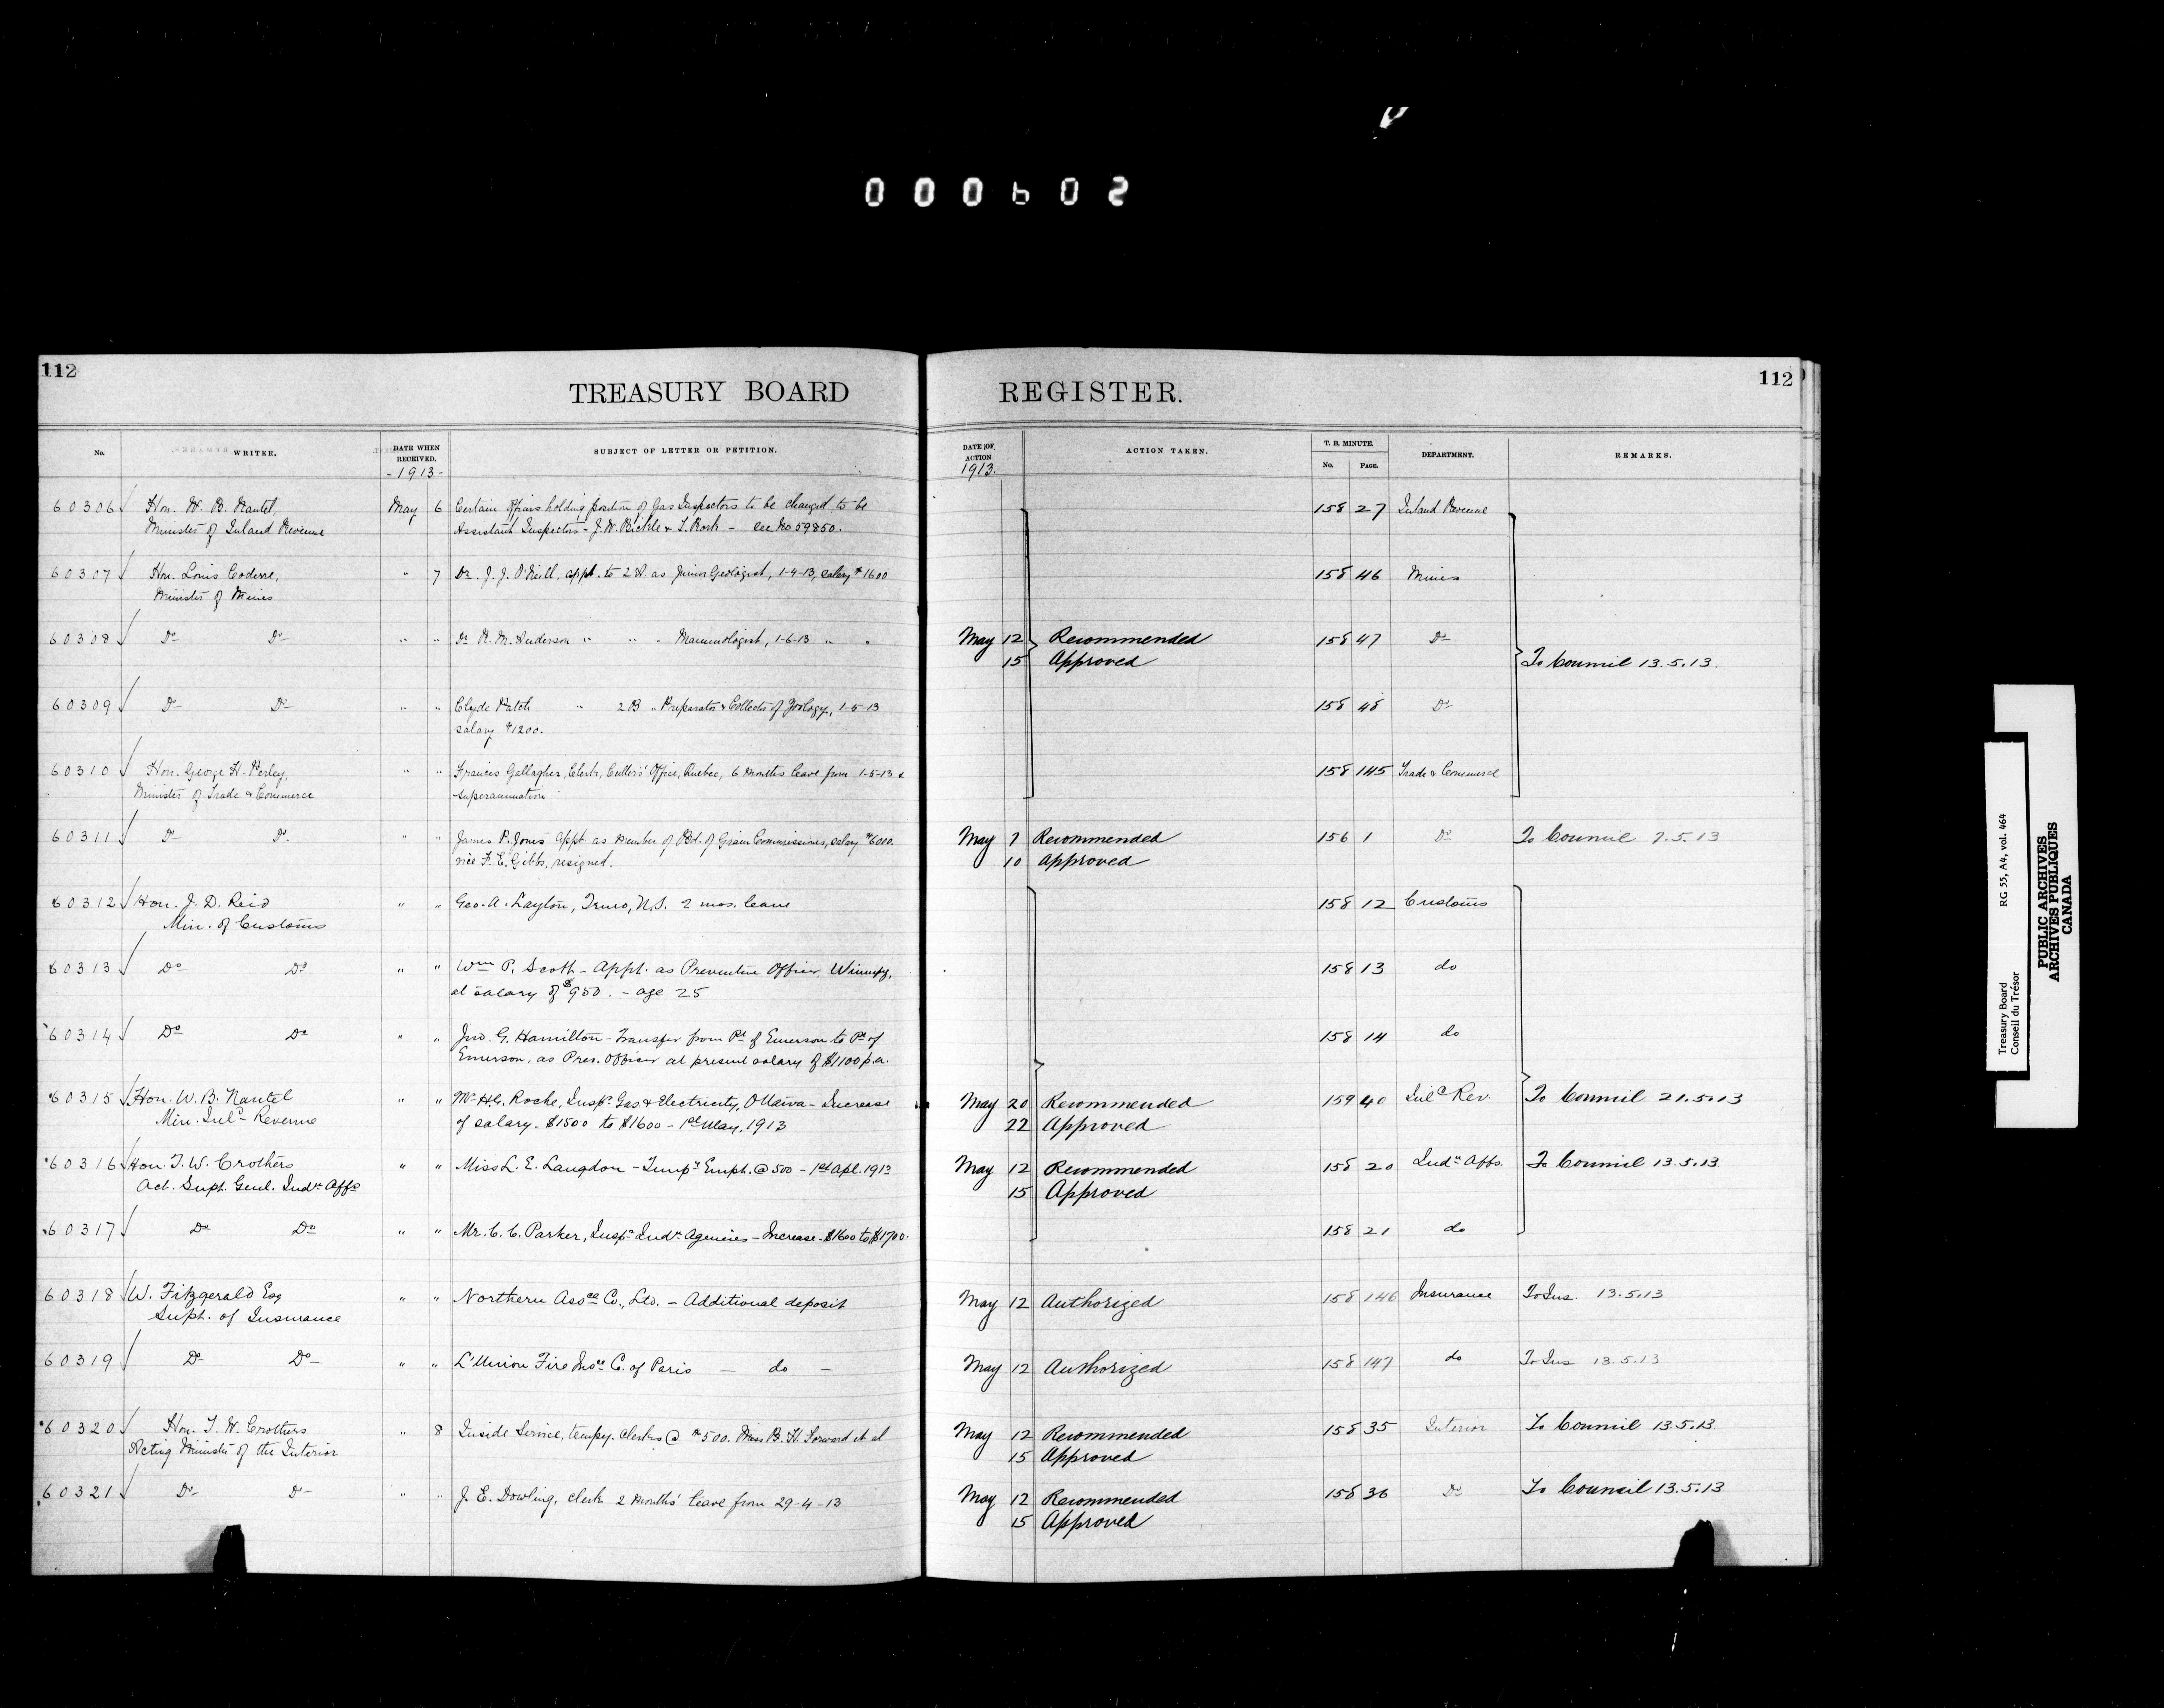 000602
112
TREASURY BOARD REGISTER.
112
No. WRITER. DATE WHEN RECEIVED. SUBJECT OF LETTER OR PETITION. DATE OF ACTION ACTION TAKEN. T. B. MINUTE. No. PAGE. DEPARTMENT. REMARKS.
-1913- 1913.
60306 Hon. W. B. Nantel, May 6 Certain officers holding position of Gas Inspectors to be changed to be 158 27 Inland Revenue
Minister of Inland Revenue Assistant Inspectors - J. W. Bickle & T. Rork - see No 59850.
60307 Hon. Louis Coderre, " 7 Dr. J. J. O'Neill, appt. to 2 A as Junior Geologist, 1-4-13, salary $1600 158 46 Mines
Minister of Mines
60308 Do Do " " Dr R. M. Anderson " " " Mammologist, 1-6-13 " " May 12 Recommended 158 47 Do
15 Approved To Council 13.5.13.
60309 Do Do " " Clyde Patch " 2 B " Preparator & Collector of Zoology, 1-5-13 158 48 Do
salary $1200.
60310 Hon. George H. Perley, " " Francis Gallagher, Clerk, Cullers' Office, Quebec, 6 months leave from 1-5-13 & 158 145 Trade & Commerce
Minister of Trade & Commerce superannuation
60311 Do Do " " James P. Jones appt. as Member of Bd. of Grain Commissioners, salary $6000. May 7 Recommended 156 1 Do To Council 7.5.13
vice F. E. Gibbs, resigned. 10 Approved
60312 Hon. J. D. Reid " " Geo. A. Layton, Truro, N.S. 2 mos. leave 158 12 Customs
Min. of Customs
60313 Do Do " " Wm P. Scott - Appt. as Preventive Officer, Winnipeg, 158 13 do
at salary of $950. - age 25
60314 Do Do " " Jno. G. Hamilton - Transfer from Pt of Emerson to Pt of 158 14 do
Emerson, as Prev. Officer at present salary of $1100 p.a.
60315 Hon. W. B. Nantel " " Mr H.G. Roche, Inspr. Gas & Electricity, Ottawa - Increase May 20 Recommended 159 40 Inld Rev. To Council 21.5.13
Min. Inld Revenue of salary - $1500 to $1600 - 1st May, 1913 22 Approved
60316 Hon. T. W. Crothers " " Miss L. E. Langdon - Tempy Emph. @ 500 - 1st Apl. 1913 May 12 Recommended 158 20 Indn Affs. To Council 13.5.13
Act. Supt. Genl. Indn Affs 15 Approved
60317 Do Do " " Mr. C. C. Parker, Inspr Indn Agencies - Increase - $1600 to $1700. 158 21 do
60318 W. Fitzgerald Esq " " Northern Assce Co., Ltd. - Additional deposit May 12 Authorized 158 146 Insurance To Ins. 13.5.13
Supt. of Insurance
60319 Do Do " " L'Union Fire Insce Co. of Paris - do - May 12 Authorized 158 147 do To Ins 13.5.13
60320 Hon. T. W. Crothers " 8 Inside Service, tempy. clerks @ $500. Miss B. H. Forward et al May 12 Recommended 158 35 Interior To Council 13.5.13
Acting Minister of the Interior 15 Approved
60321 Do Do " " J. E. Dowling, clerk 2 months' leave from 29-4-13 May 12 Recommended 158 36 Do To Council 13.5.13
15 Approved
Treasury Board RG 55, A4, vol. 464
Conseil du Trésor
PUBLIC ARCHIVES
ARCHIVES PUBLIQUES
CANADA